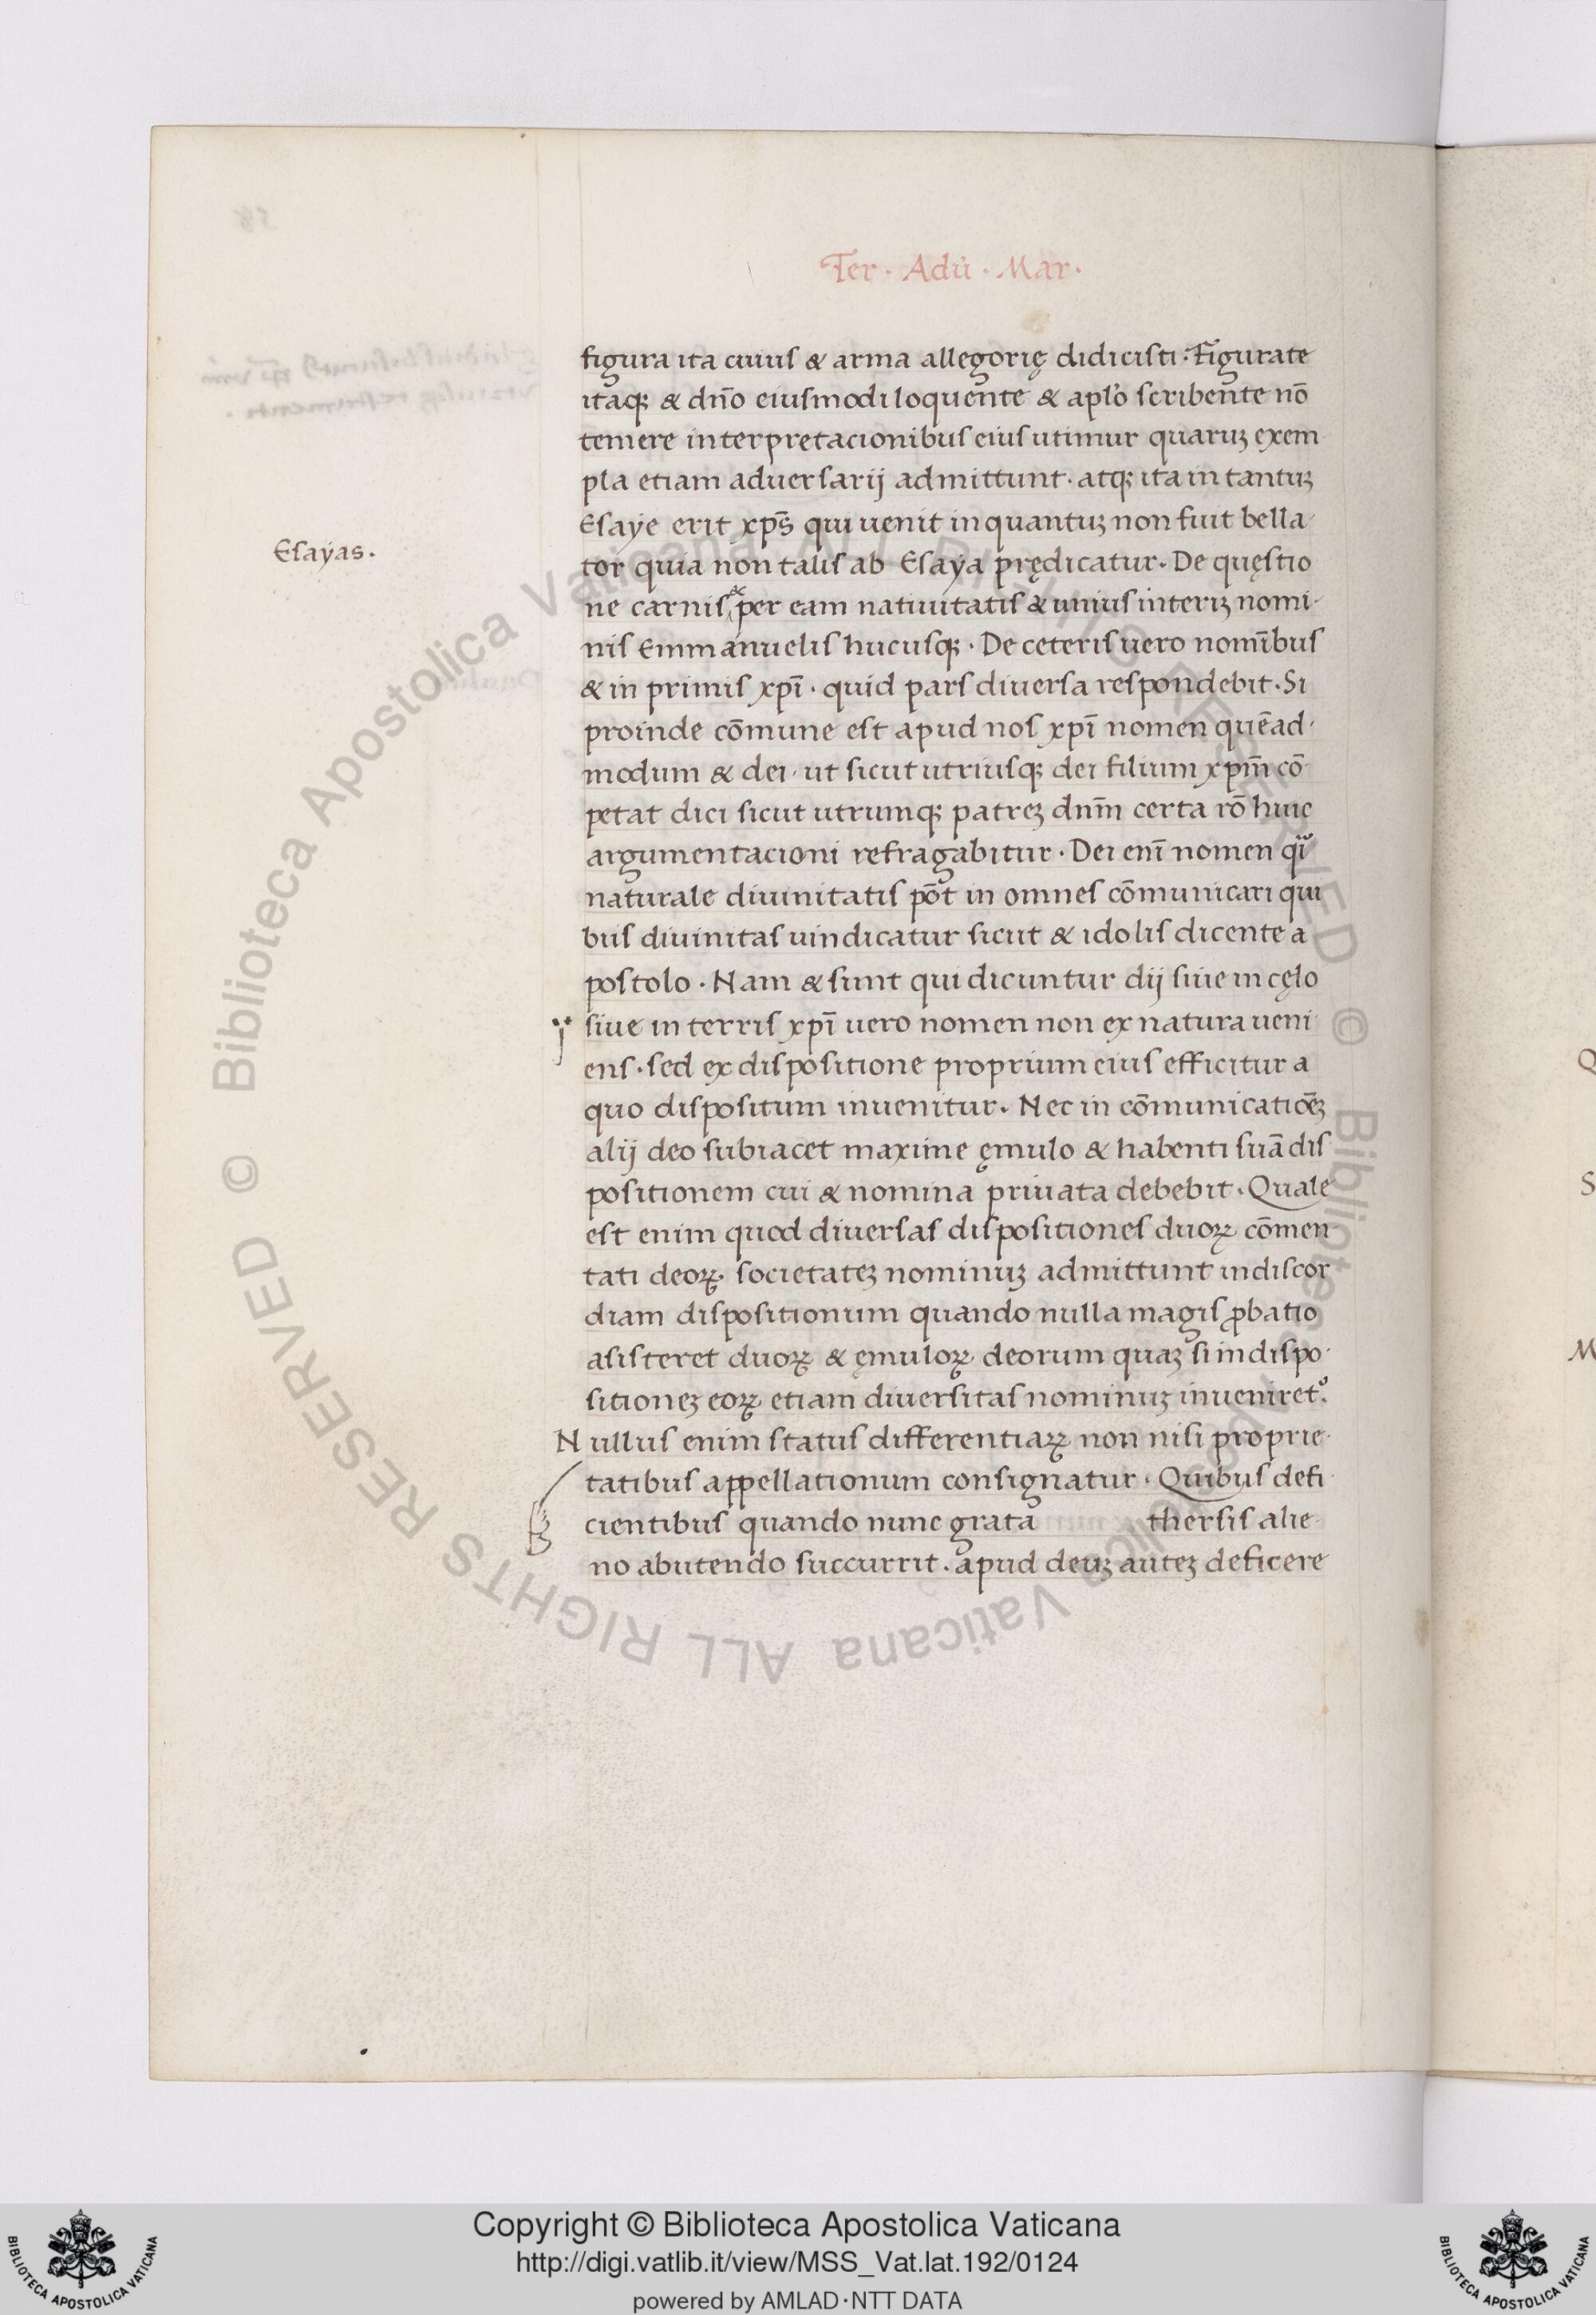 Ter · Adu̇ · Mar·
figura ita cuius & arma allegorię didicisti · Figurate
itaqꝫ & dn̄o eiusmodi loquente & apl̓o scribente nō
temere interpretacionibus eius utimur quaruꝫ exem
pla etiam aduersarij admittunt · atqꝫ ita in tantuꝫ
Esaye erit xp̄s qui uenit inquantuꝫ non fuit bella-
Esayas ·
tor quia non talis ab Esaya prędicatur · De quęstio
ne carnis &per eam natiuitatis & unius interiꝫ nomi-
nis Emmanuelis hucusqꝫ · De ceteris uero nomībus
& in primis xpī · quid pars diuersa respondebit · Si
proinde cōmune est apud nos xpī nomen quēad-
modum & dei · ut sicut utriusqꝫ dei filium xpm̄ cō-
petat dici sicut utrumqꝫ patreꝫ dnm̄ certa rō huic
argumentacioni refragabitur · Dei enī nomen qͣi
naturale diuinitatis pōt in omnes cōmunicari qui
bus diuinitas uindicatur sicut & idolis dicente a
postolo · Nam & sunt qui dicuntur dij siue in cęlo
siue in terris xpī uero nomen non ex natura ueni
ens · sed ex dispositione proprium eius efficitur a
quo dispositum inuenitur · Nec in cōmunicatiōeꝫ
alij deo subiacet maxime ęmulo & habenti suā dis
positionem cui & nomina priuata debebit · Quale
est enim quod diuersas dispositiones duoꝝ cōmen-
tati deoꝝ · societateꝫ nominuꝫ admittunt in discor
diam dispositionum quando nulla magis ꝓbatio
asisteret duoꝝ & ęmuloꝝ deorum quaꝫ si in dispo-
sitioneꝫ eoꝝ etiam diuersitas nominuꝫ inueniret᷒.
Nullus enim status differentiaꝝ non nisi proprie-
tatibus appellationum consignatur · Quibus defi-
cientibus quando nunc grata thersis alie-
no abutendo succurrit · apud deuꝫ auteꝫ deficere
© Biblioteca Apostolica Vaticana ALL RIGHTS RESERVED © Biblioteca Apostolica Vaticana ALL RIGHTS RESERVED
Copyright © Biblioteca Apostolica Vaticana
http://digi.vatlib.it/view/MSS_Vat.lat.192/0124
powered by AMLAD·NTT DATA
BIBLIOTECA APOSTOLICA VATICANA
BIBLIOTECA APOSTOLICA VATICANA